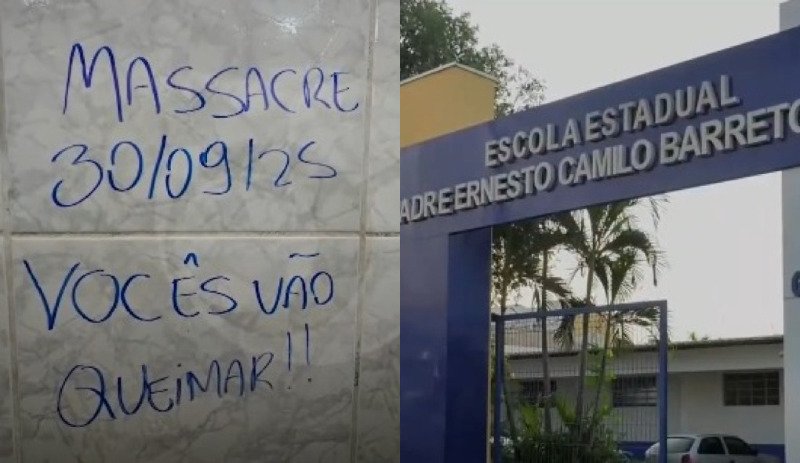 MASSACRE
30/09/25
VOCÊS VÃO
QUEIMAR!!
ESCOLA ESTADUAL
ADRE ERNESTO CAMILO BARRETO